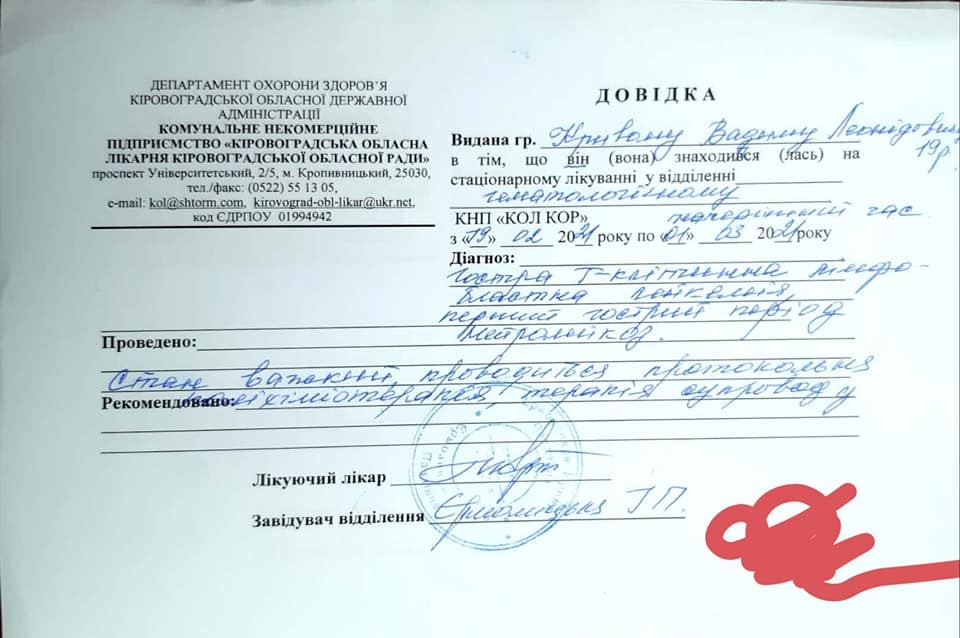 ДЕПАРТАМЕНТ ОХОРОНИ ЗДОРОВ'Я
КІРОВОГРАДСЬКОЇ ОБЛАСНОЇ ДЕРЖАВНОЇ
АДМІНІСТРАЦІЇ
КОМУНАЛЬНЕ НЕКОМЕРЦІЙНЕ
ПІДПРИЄМСТВО «КІРОВОГРАДСЬКА ОБЛАСНА
ЛІКАРНЯ КІРОВОГРАДСЬКОЇ ОБЛАСНОЇ РАДИ»
проспект Університетський, 2/5, м. Кропивницький, 25030,
тел./факс: (0522) 55 13 05,
e-mail: kol@shtorm.com, kirovograd-obl-likar@ukr.net,
код ЄДРПОУ 01994942
ДОВІДКА
Видана гр. Кривому Вадиму Леонідовичу
19р.
в тім, що він (вона) знаходився (лась) на
стаціонарному лікуванні у відділенні
гематологічному
КНП «КОЛ КОР» час
з «19» 02 2021 року по «01» 03 2021 року
Діагноз:
Гостра Т-клітинна лімфо-
бластна лейкемія,
перший гострий період
Нейролейкоз.
Проведено:
Стан важкий, проводиться протокольна
Рекомендовано: поліхіміотерапія, терапія супроводу
Лікуючий лікар
Завідувач відділення